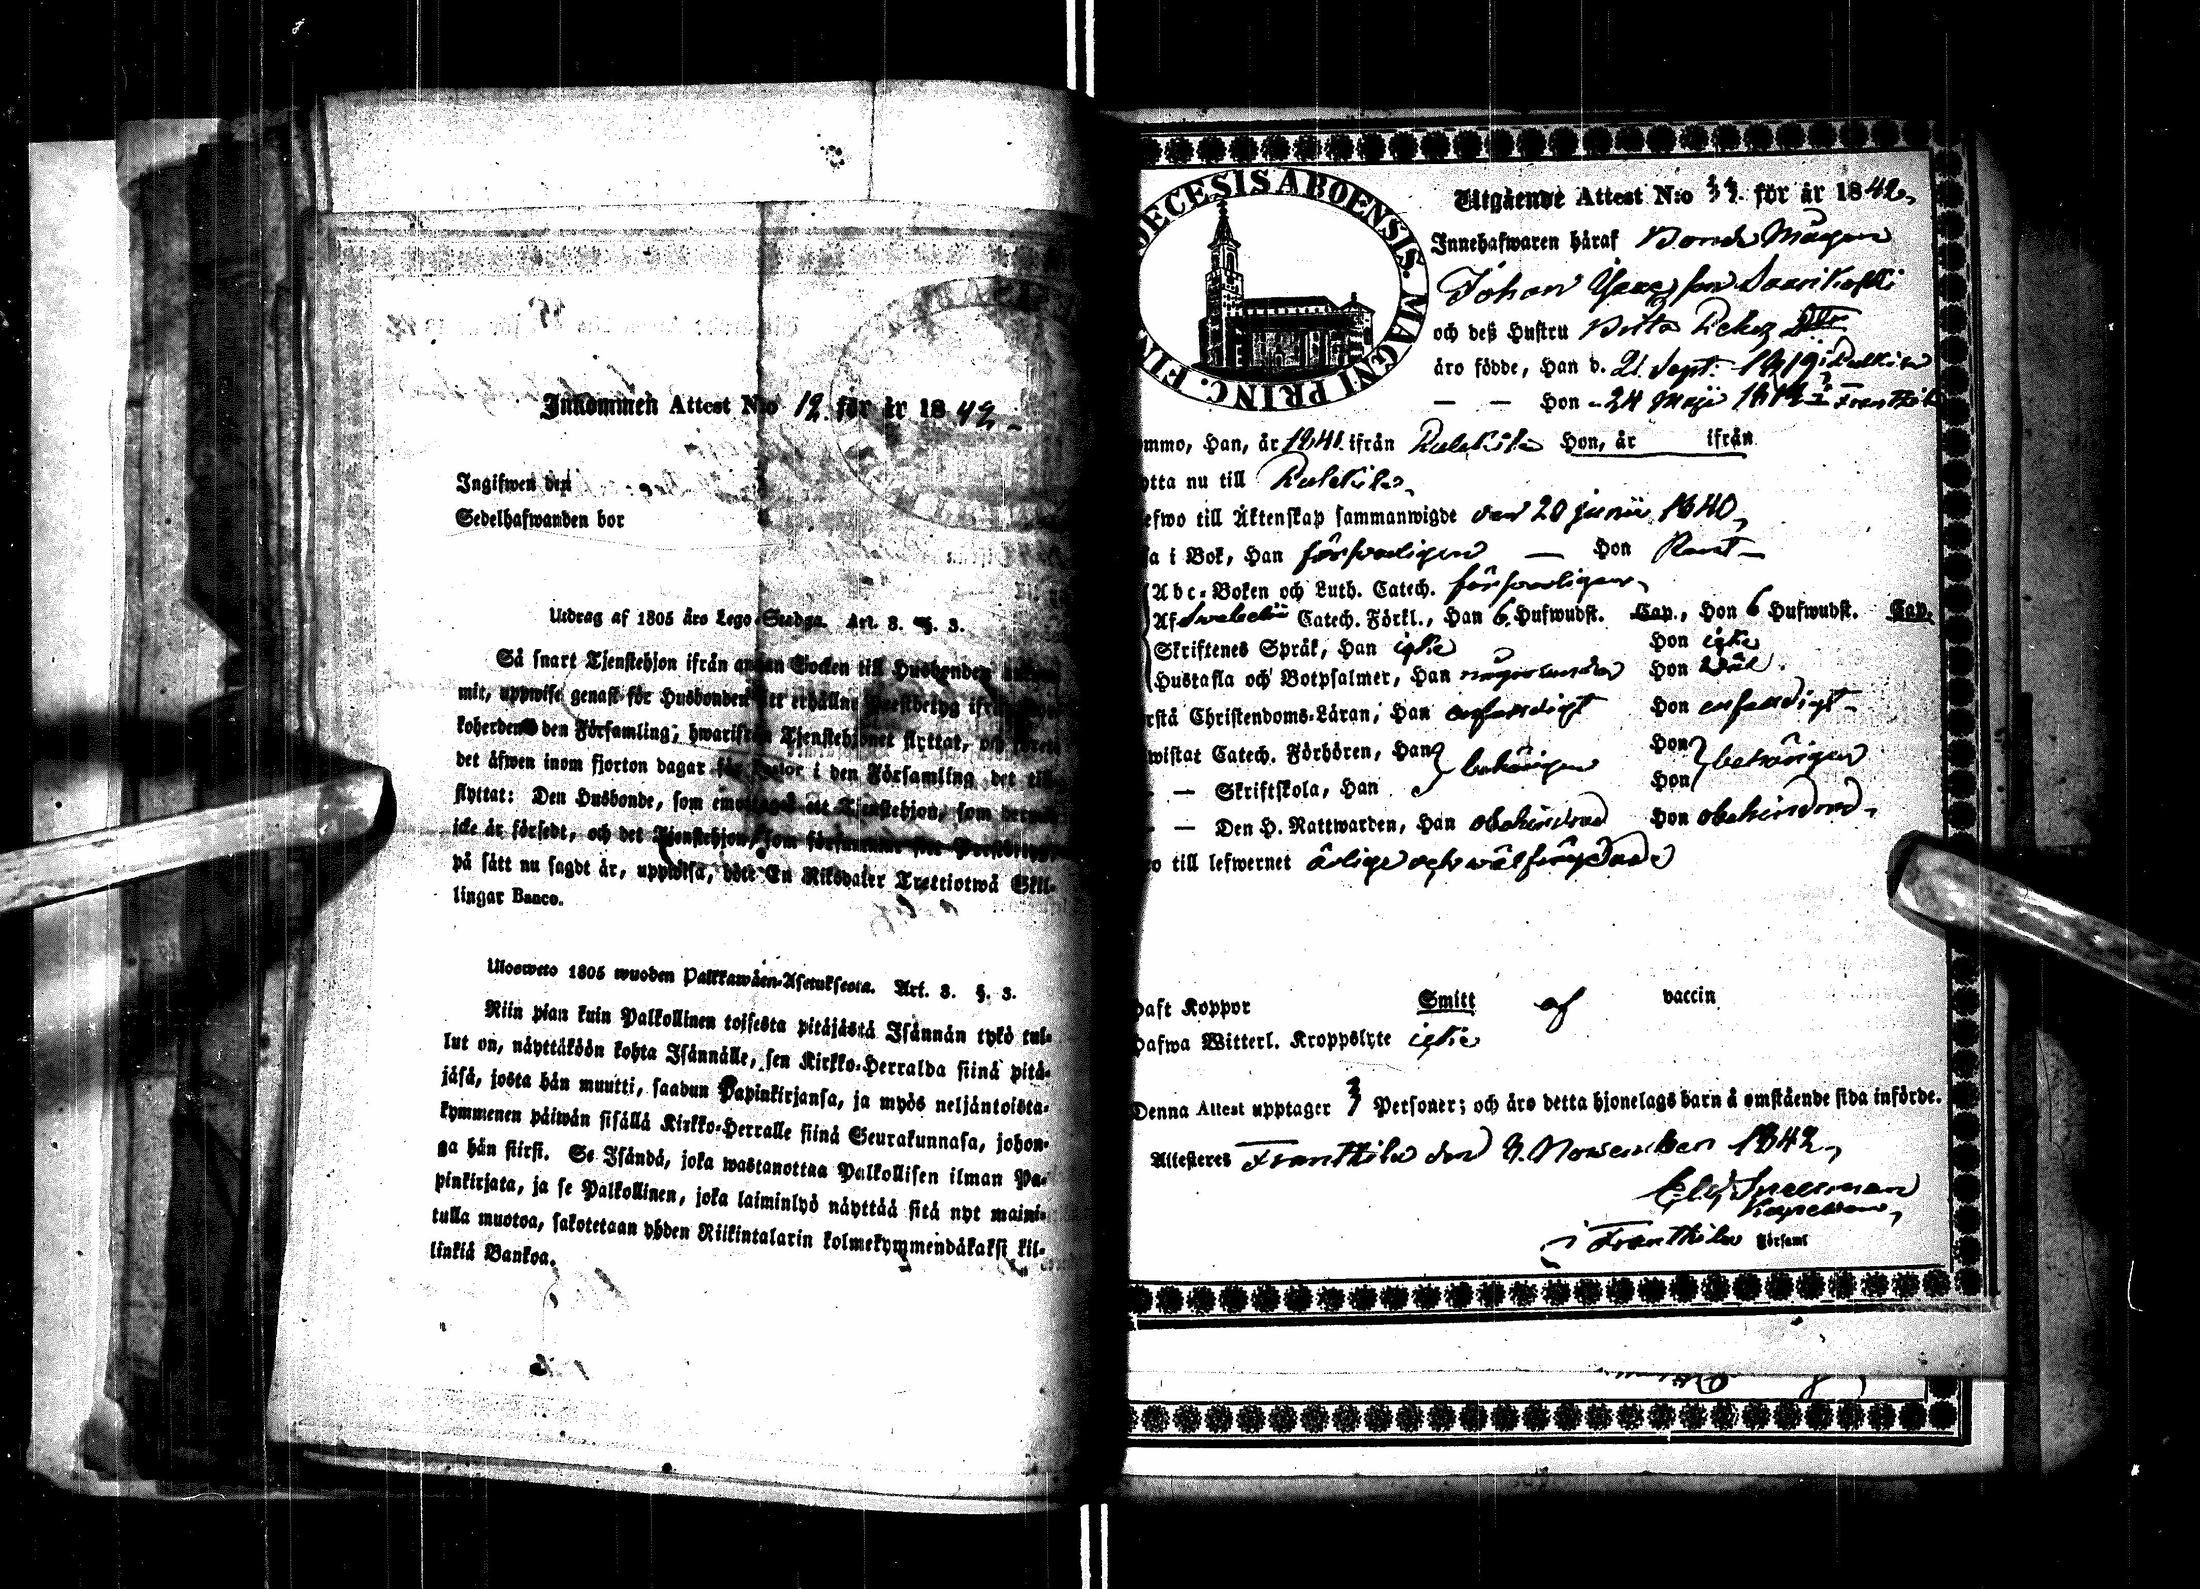 Inkommen Attest N:o 12. för år 1842.
Ingifwen den
Sedelhafwanden bor
Utdrag af 1805 års Lego-Stadga. Art. 8. §. 3.
Så snart Tjenstehjon ifrån annan Socken till Husbonden
mit, uppwise genast för Husbonden det erhållne Prestbetyg ifrån
koherdens den Församling, hwarifrån Tjenstehjonet flyttat, och
det äfwen inom fjorton dagar för Pastor i den Församling det till
flyttat: Den Husbonde, som emottager ett Tjenstehjon, som dermed
icke är försedt, och det Tjenstehjon, som försummar sitt Prestbetyg,
på sätt nu sagdt är, uppwisa, böte En Riksdaler Trettiotwå Skil-
lingar Banco.
Ulosweto 1805 wuoden Palkkawäen-Asetuksesta. Art. 8. §. 3.
Niin pian kuin Palkollinen toisesta pitäjästä Isännän tykö tul-
lut on, näyttäköön kohta Isännälle, sen Kirkko-Herralda siinä pitä-
jäsä, josta hän muutti, saadun Papinkirjansa, ja myös neljäntoista-
kymmenen päiwän sisällä Kirkko-Herralle siinä Seurakunnasa, johon-
ga hän siirsi. Se Isändä, joka wastanottaa Palkollisen ilman Pa-
pinkirjata, ja se Palkollinen, joka laiminlyö näyttää sitä nyt maini-
tulla muotoa, sakotetaan yhden Riikintalarin kolmekymmendäkaksi kil-
linkiä Bankoa.
DECESIS ABOENSIS. MAGNI PRINC. FIN
Utgående Attest N:o för år 1842.
Innehafwaren häraf Bonde Mågen
Johan son Saarikoski
och deß Hustru Britta
äro födde, Han d. 21 Sept. 1819
— — Hon - 24 Maji
ommo, Han, år 1841 ifrån Pulkkila Hon, år ifrån
ytta nu till Pulkkila
efwo till Äktenskap sammanwigde den 20 junii 1840,
sa i Bok, Han försvarligen — Hon Rent —
Abc-Boken och Luth. Catech. försvarligen
Af Svebelii Catech. Förkl., Han 6 Hufwudst. Cap., Hon 6 Hufwudst. Cap.
Skriftenes Språk, Han icke Hon icke
Hustafla och Botpsalmer, Han någorlunda Hon väl.
rstå Christendoms-Läran, Han enfaldigt Hon enfaldigt
wistat Catech. Förhören, Han behörigen Hon behörigen
— — Skriftskola, Han Hon
— — Den H. Nattwarden, Han obehindrad Hon obehindrad.
o till lefwernet ärlige och wälfrejdade
haft Koppor Smitt af vaccin
hafwa Witterl. Kroppslyte icke
Denna Attest upptager 3 Personer; och äro detta hjonelags barn å omstående sida införde.
Attesteras Frantsila den 3. November 1842,
Snellman
Kapellan,
i Frantsila Församl